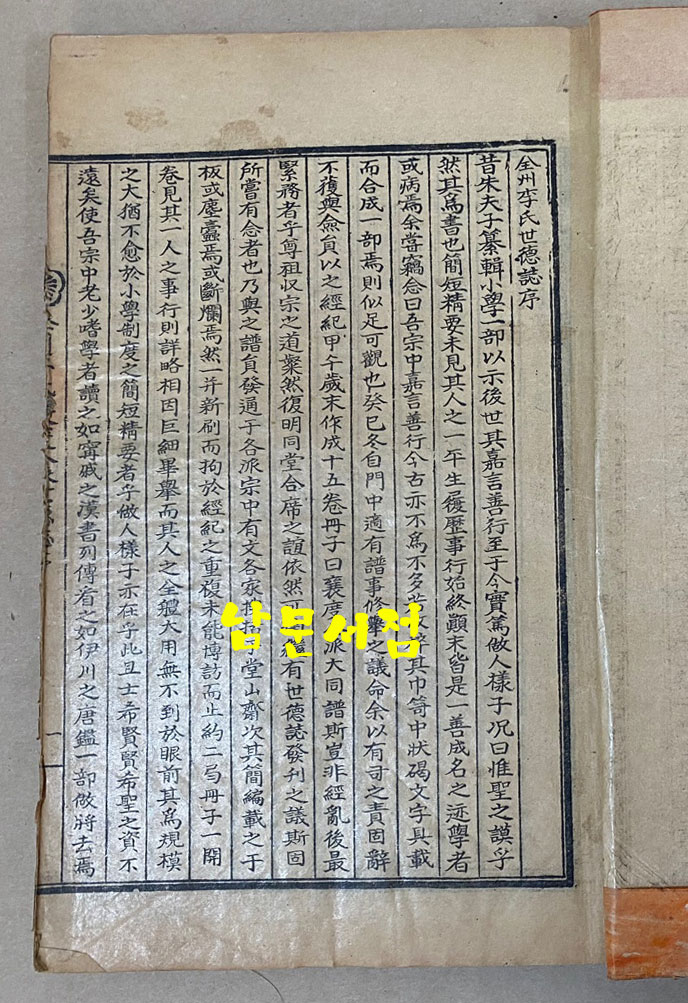 全州李氏世德誌序
昔朱夫子纂輯小學一部以示後世其嘉言善行至于今實篤做人樣子况曰惟聖之謨乎
然其爲書也簡短精要未見其人之一平生履歷事行始終顚末皆是一善成名之迹學者
或病焉余嘗竊念曰吾宗中嘉言善行今古亦不爲不多若 其巾笥中狀碣文字具載
而合成一部焉則似足可觀也癸巳冬自門中適有譜事修擧之議命余以有司之責固辭
不獲與僉員以之經紀甲午歲末作成十五卷冊子曰襄度 派大同譜斯豈非經亂後最
緊務者乎尊祖収宗之道粲然復明同堂合席之誼依然 繼有世德誌發刋之議斯固
所嘗有念者也乃與之譜員發通于各派宗中有文各家 堂山齋次其簡編載之于
板或塵蠹焉或斷爛焉然一并新刷而拘於經紀之重複未能博訪而止約二 冊子一開
卷見其一人之事行則詳略相因巨細畢擧而其人之全體大用無不到於眼前其爲規模
之大猶不愈於小學制度之簡短精要者乎做人樣子亦在乎此且士希賢賢希聖之資不
遠矣使吾宗中老少嗜學者讀之如甯戚之漢書列傳看之如伊川之唐鑑一部做將去焉
一
남문서점